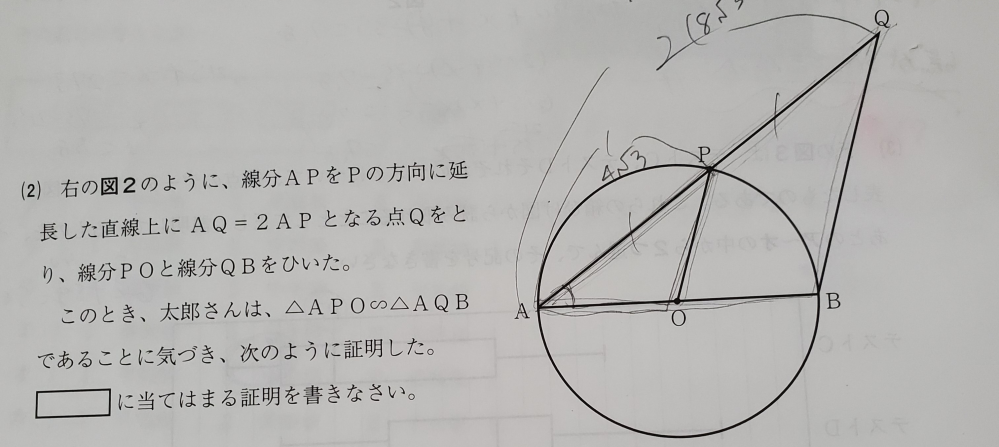 ⑵ 右の図2のように、線分APをPの方向に延
長した直線上に AQ=2AP となる点Qをと
り、線分POと線分QBをひいた。
このとき、太郎さんは、△APO∽△AQB
であることに気づき、次のように証明した。
に当てはまる証明を書きなさい。
Q
2 (8√3
P
1
4√3
A
O
B